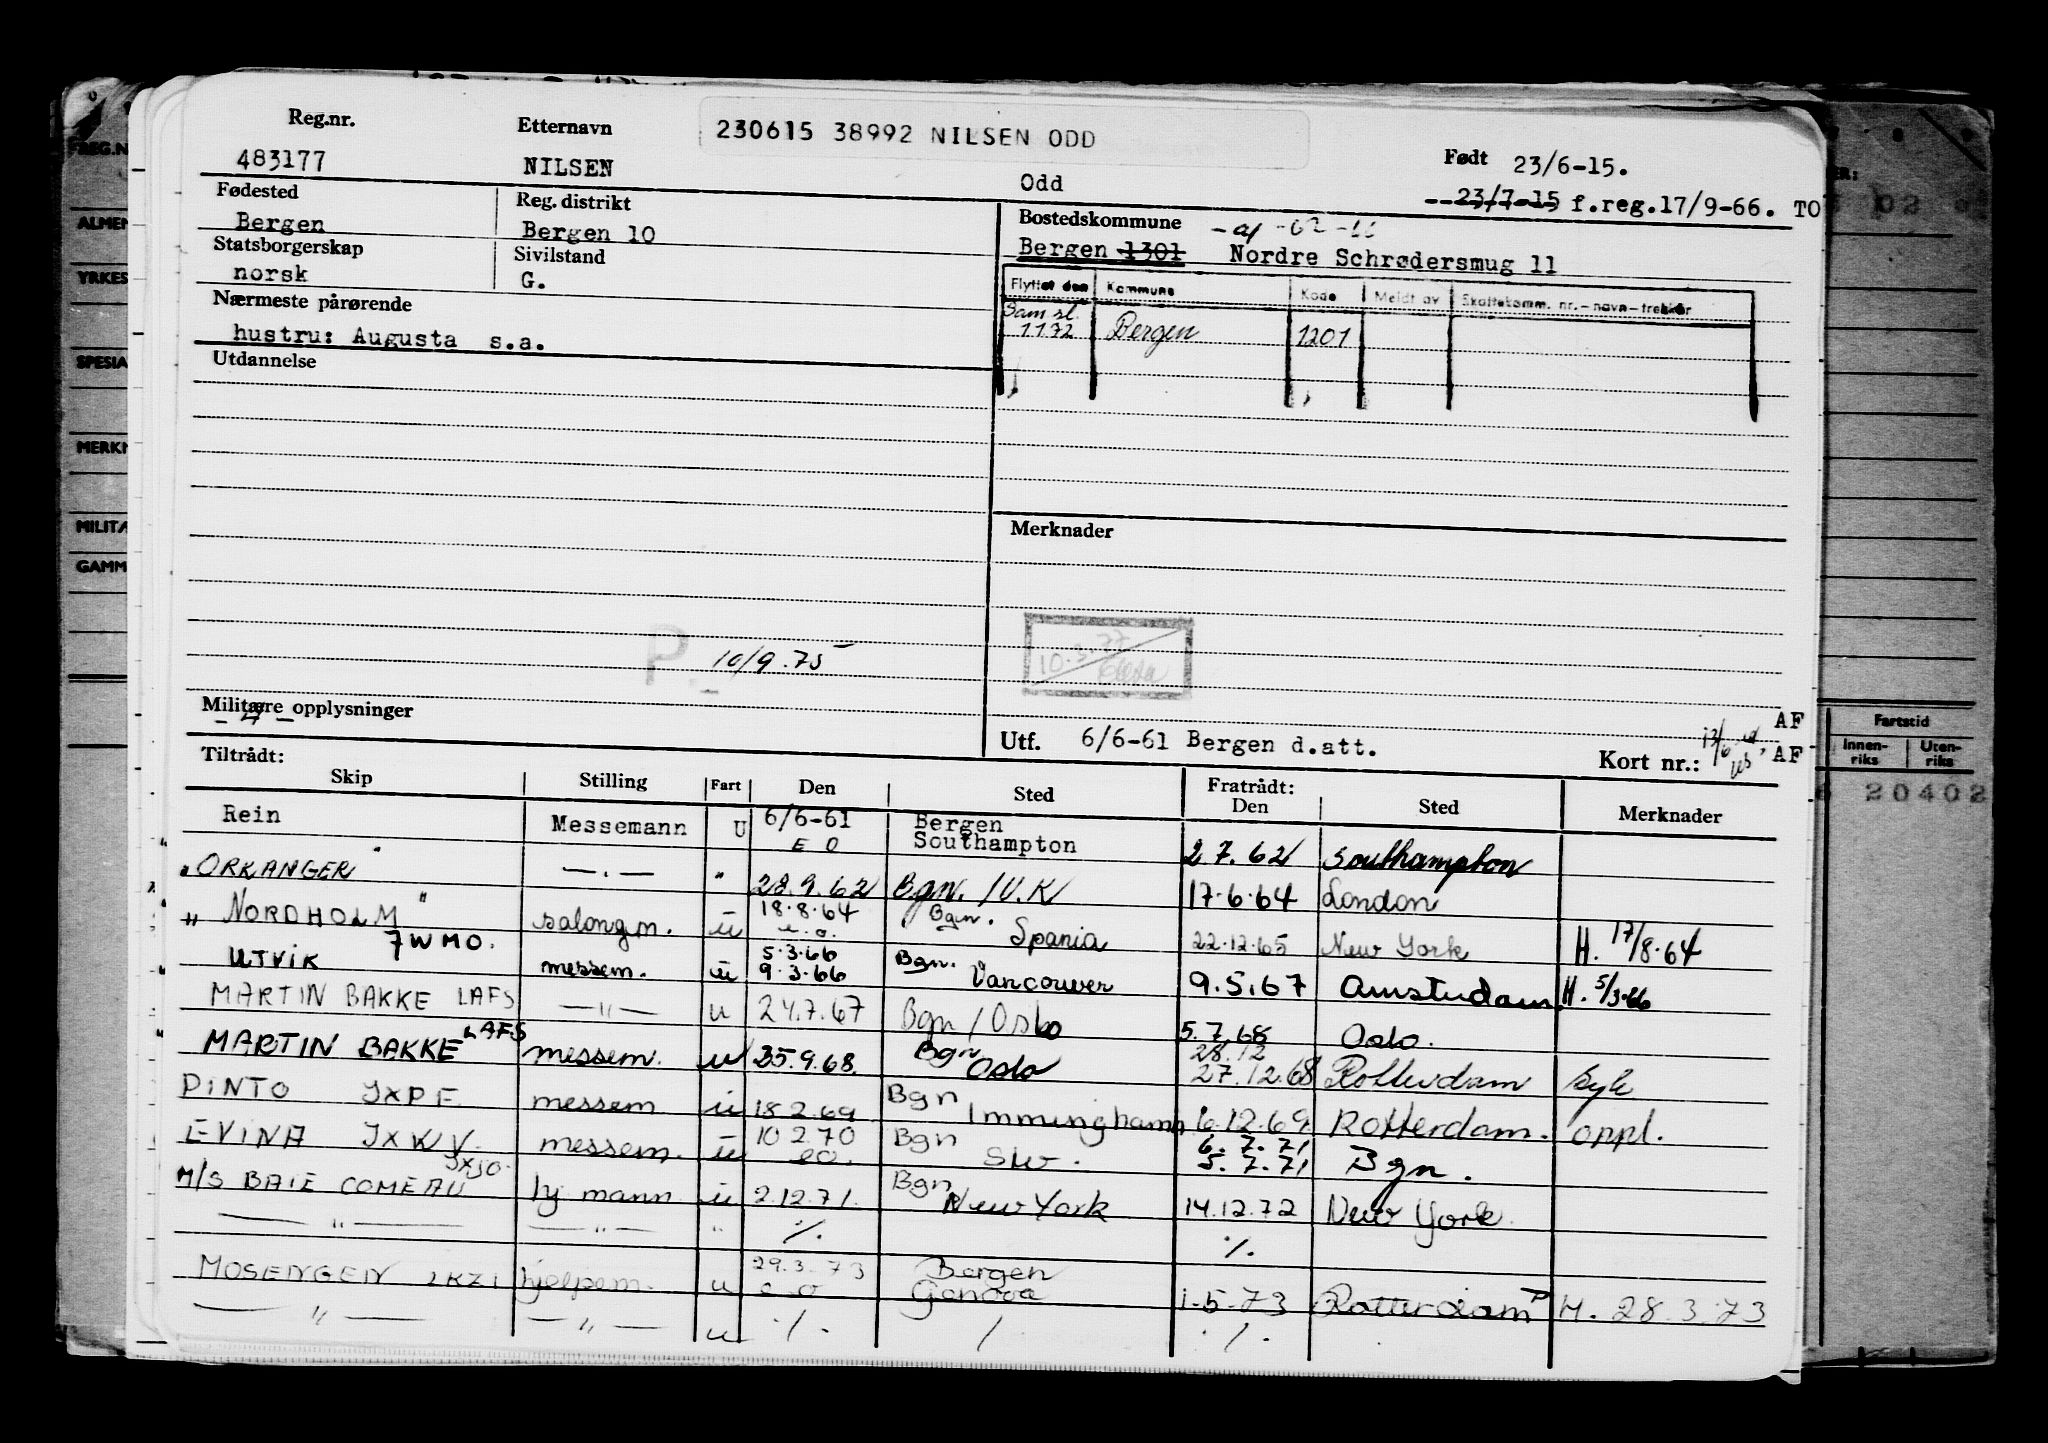 Reg.nr. Etternavn 230615 38992 NILSEN ODD
483177 NILSEN Odd Født 23/6-15.
23/7-15 f.reg.17/9-66. TO
Fødested Reg. distrikt Bostedskommune
Bergen Bergen 10 Bergen 1301 Nordre Schrødersmug 11
Statsborgerskap Sivilstand
norsk G.
Flyttet den Kommune Kode Meldt av Skattekomm. nr. - navn - trekkår
Nærmeste pårørende
Sam sl.
1.1.72 Bergen 1201
hustru: Augusta s.a.
Utdannelse
Merknader
P 10/9.75
10.3.77
Militære opplysninger
AF
Utf. 6/6-61 Bergen d.att. Kort nr.: AF
Tiltrådt: Fratrådt:
Skip Stilling Fart Den Sted Den Sted Merknader
Rein Messemann U 6/6-61 Bergen
E O Southampton 2.7.62 Southampton
"ORKANGER" — . — " 28.9.62 Bgn. / U.K 17.6.64 London
" NORDHOLM " salongm. u 18.8.64 Bgn.
7WMO. e.o. Spania 22.12.65 New York H. 17/8.64
UTVIK messem. u 5.3.66 Bgn.
9.3.66 Vancouver 9.5.67 Amsterdam H. 5/3.66
MARTIN BAKKE LAFS — " — u 24.7.67 Bgn / Oslo 5.7.68 Oslo.
MARTIN BAKKE LAFS messem. u 25.9.68. Bgn Oslo 28.12
27.12.68 Rotterdam syk
PINTO JXPF messem u 18.2.69 Bgn Immingham 6.12.69 Rotterdam. oppl.
EVINA JXKV messem. u 10 2.70 Bgn 6.7.71
eo. 5.7.71 Bgn.
M/S BAIE COMEAU JXJO hj. mann u 2.12.71. Bgn New York 14.12.72 New York.
— " — — " — " ./. ./.
MOSENGEN LKZI hjelpem. u 29.3.73 Bergen
e o Genova 1.5.73 Rotterdam H. 28.3.73
— " — — " — u ./. / ./.
REG.N
ALMEN
YRKES
SPESIA
MERKN
MILITÆ
GAMM
Fartstid
Innen-riks Uten-riks
20402